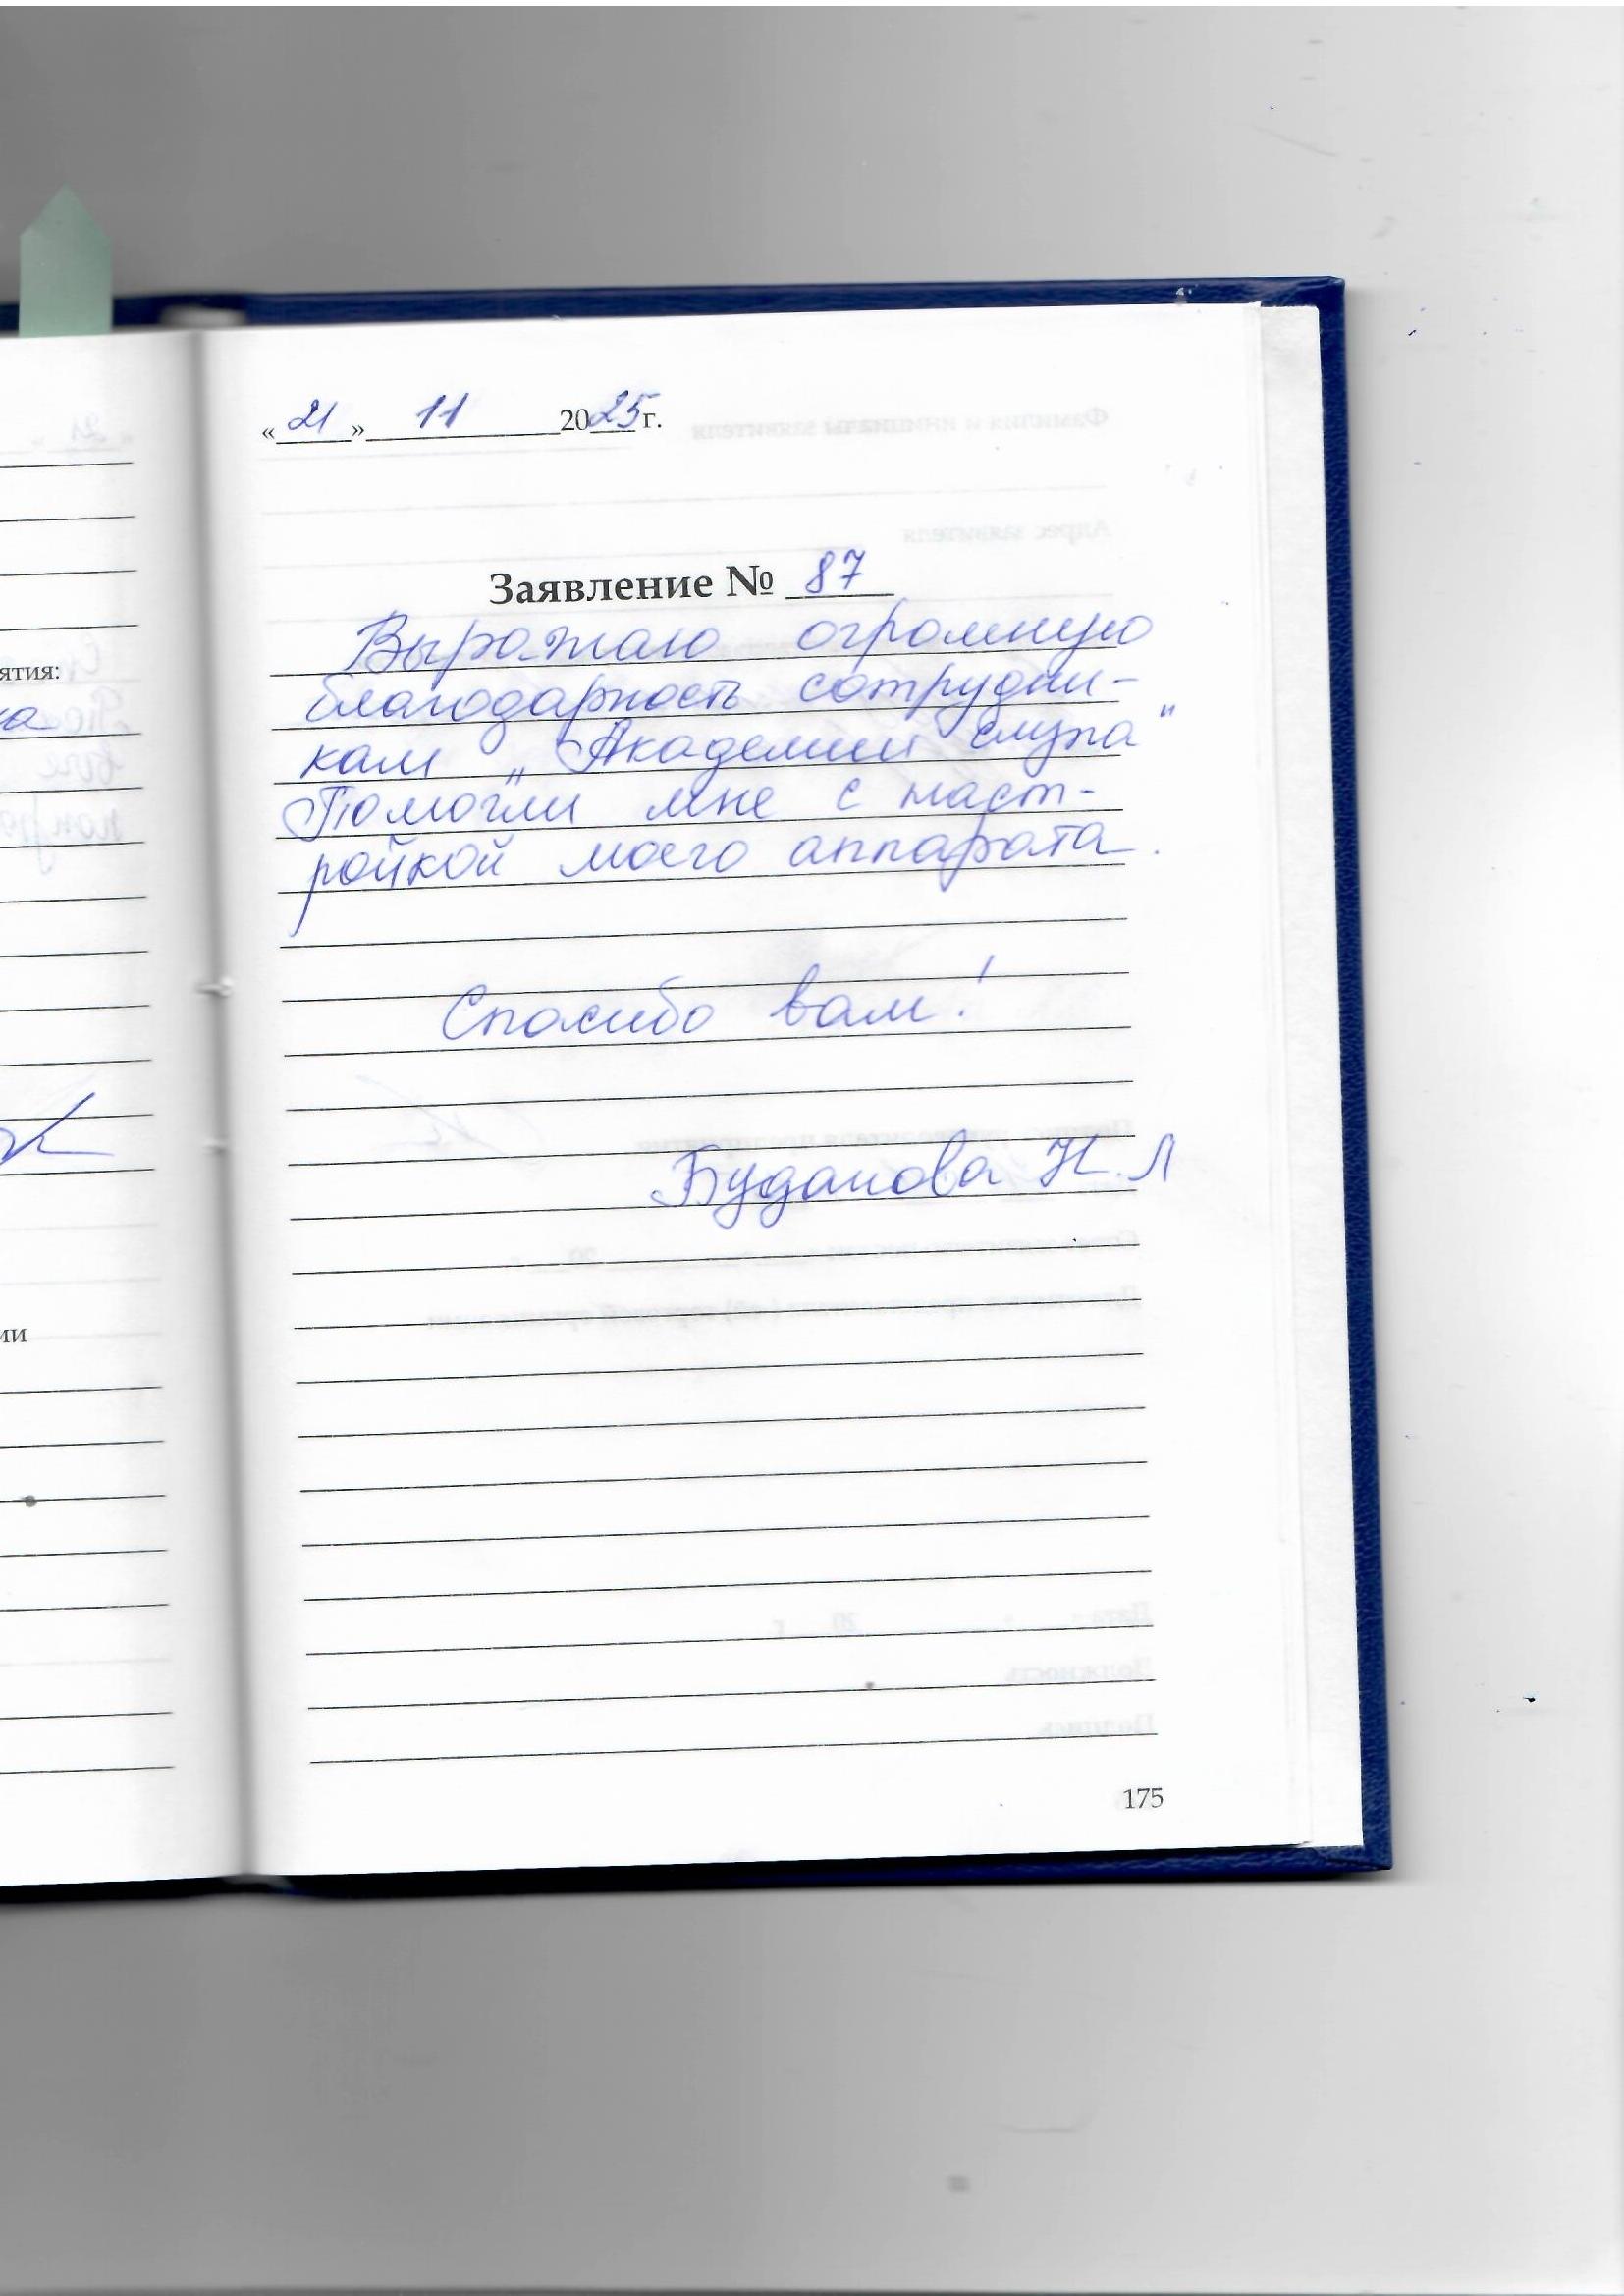 «21» 11 2025 г.
Заявление № 87
Выражаю огромную
благодарность сотрудни-
кам „Академии слуха"
Помогли мне с наст-
ройкой моего аппарата.
Спасибо вам!
Буданова Н.Л
175
ятия:
ка
ии